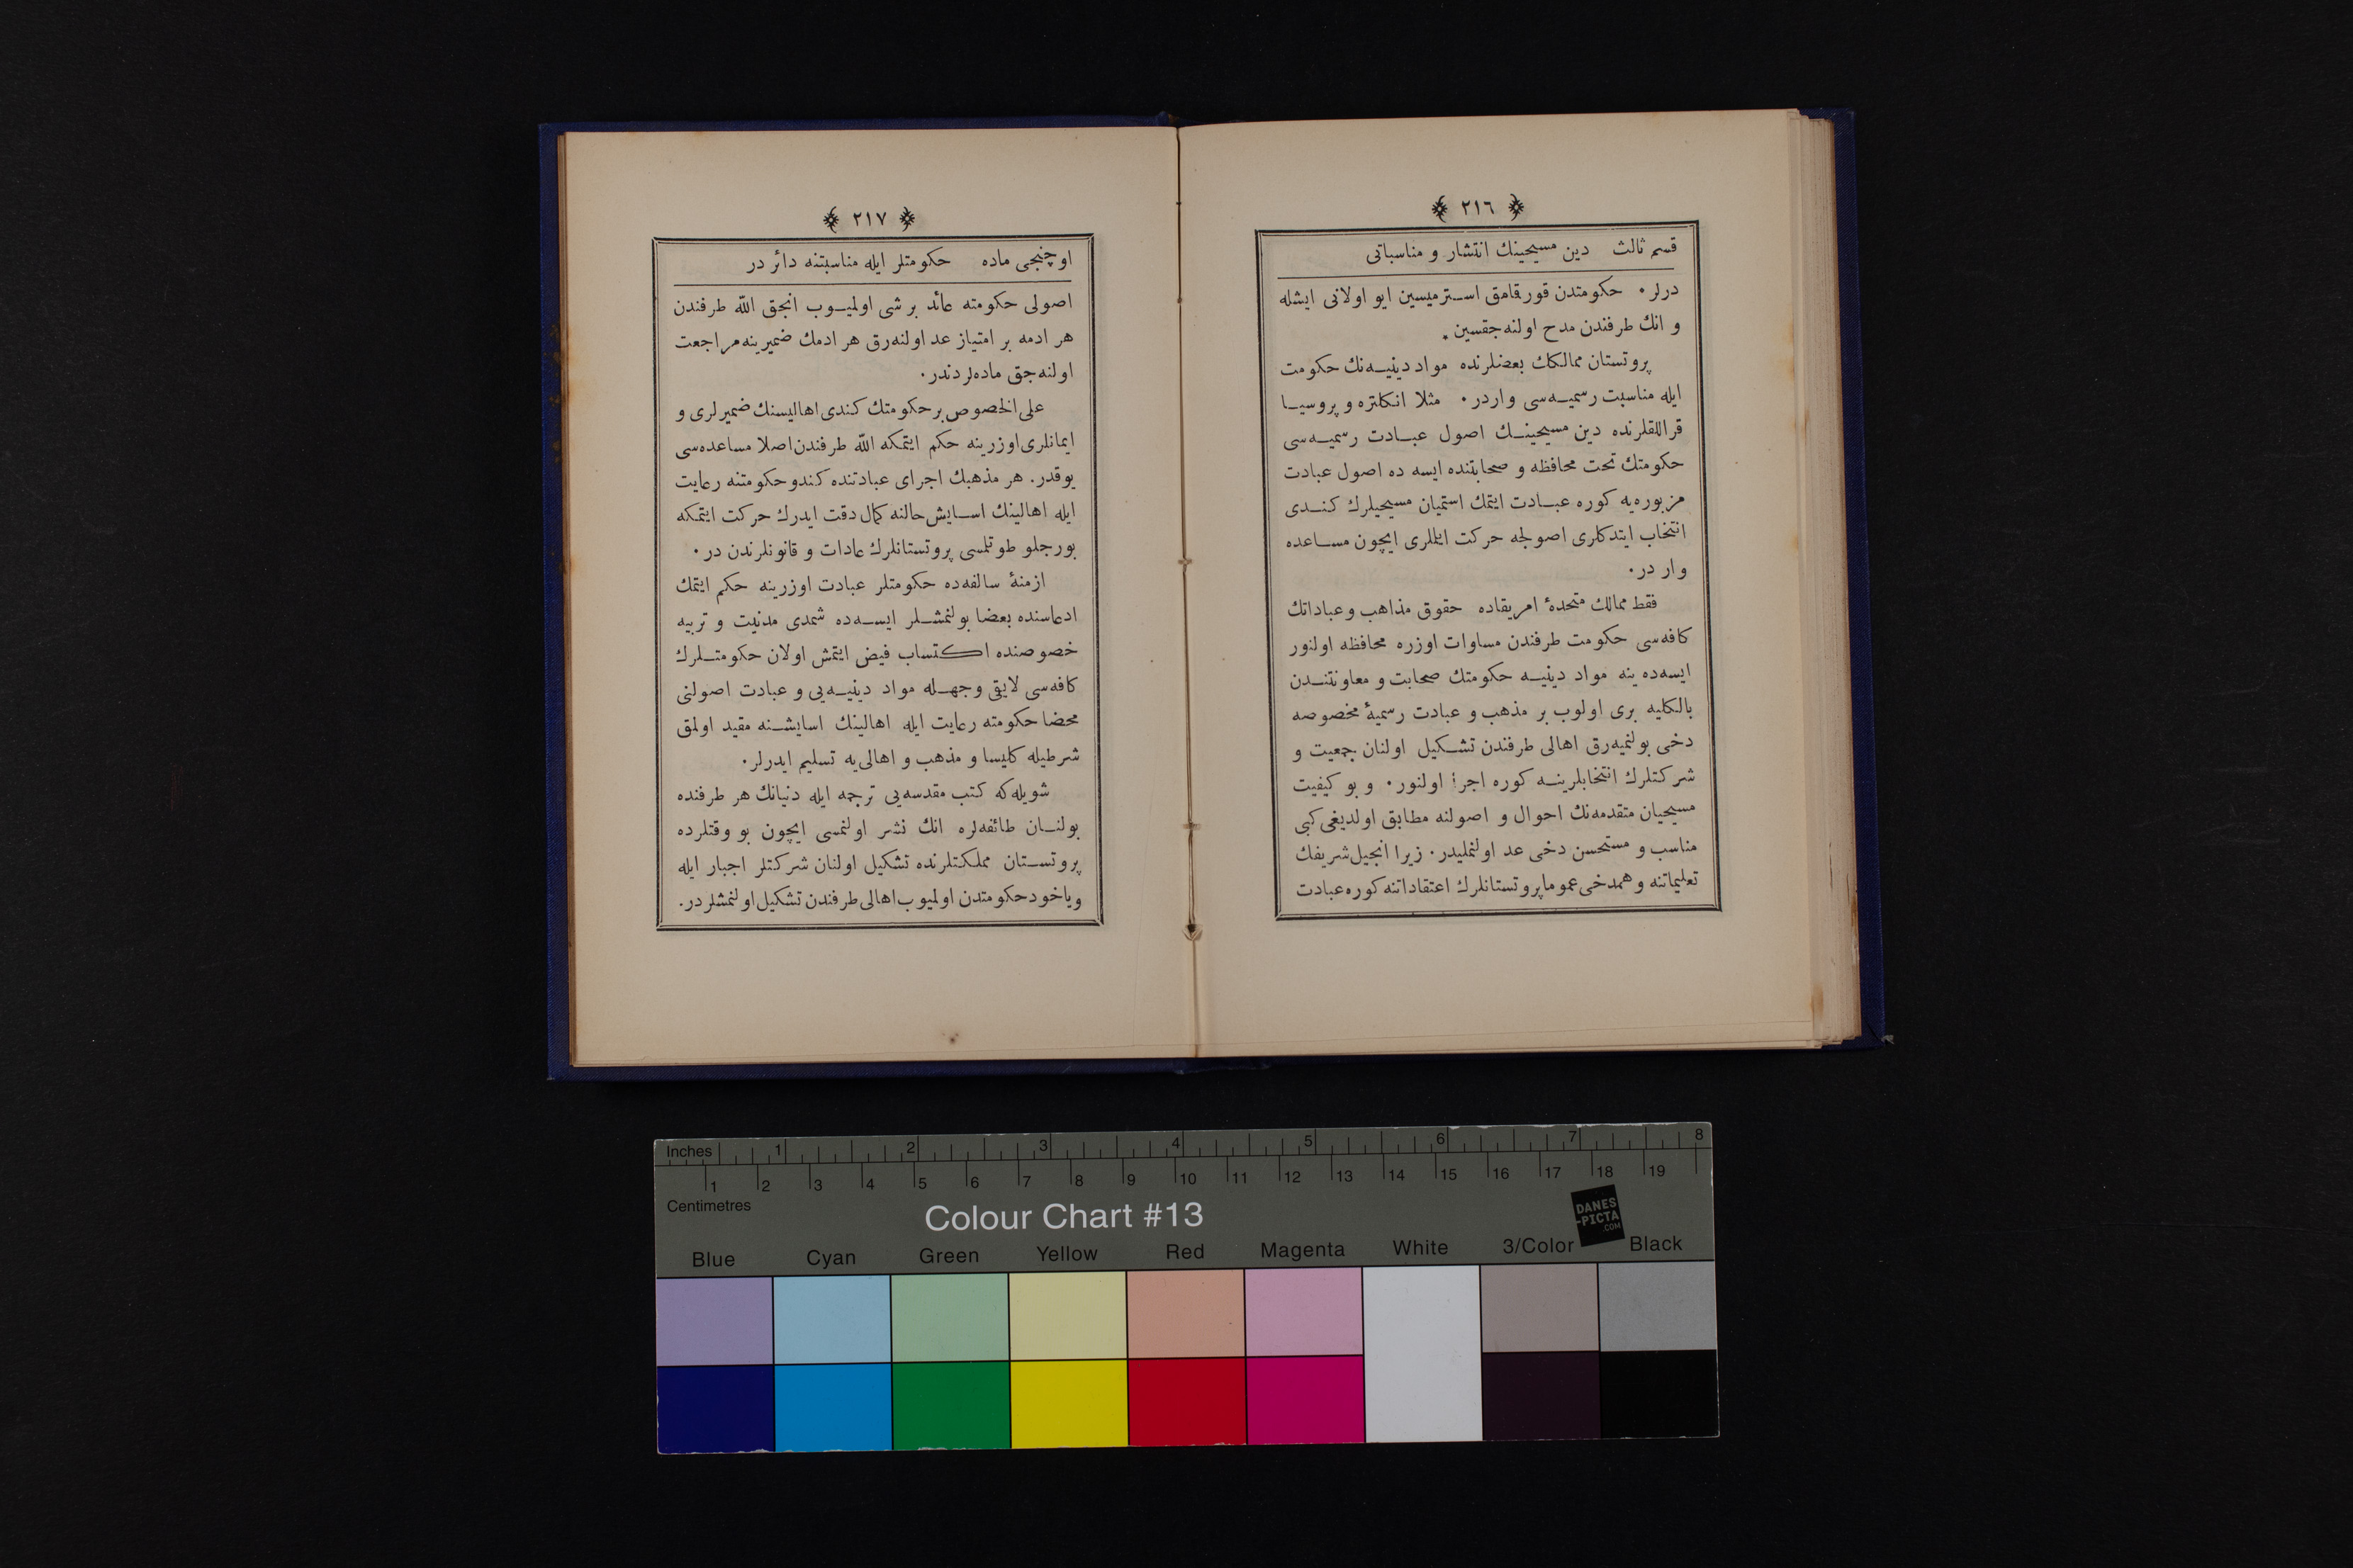 ﴿ ٢١٦ ﴾
قسم ثالث دین مسیحینك انتشار و مناسباتی
درلر۰ حکومتدن قورقامق استرمیسین ایو اولانی ایشله
و انك طرفندن مدح اولنه جقسین٭
پروتستان ممالكك بعضلرنده مواد دینیه‌نك حکومت
ایله مناسبت رسمیه‌سی واردر۰ مثلا انكلتره و پروسیا
قراللقلرنده دین مسیحینك اصول عبادت رسمیه‌سی
حکومتك تحت محافظه و صحابتنده ایسه ده اصول عبادت
مزبوره‌یه کوره عبادت ایتمك استمیان مسیحیلرك کندی
انتخاب ایتدکلری اصولجه حرکت ایتملری ایچون مساعده
وار در۰
فقط ممالك متحدهٔ امریقاده حقوق مذاهب و عباداتك
کافه‌سی حکومت طرفندن مساوات اوزره محافظه اولنور
ایسه‌ده ینه مواد دینیه حکومتك صحابت و معاونتندن
بالکلیه بری اولوب بر مذهب و عبادت رسمیهٔ مخصوصه
دخی بولنمیه‌رق اهالی طرفندن تشکیل اولنان جمعیت و
شرکتلرك انتخابلرینه کوره اجرأ اولنور۰ و بو کیفیت
مسیحیان متقدمه‌نك احوال و اصولنه مطابق اولدیغی کبی
مناسب و مستحسن دخی عد اولنملیدر۰ زیرا انجیل شریفك
تعلیماتنه و همدخی عموما پروتستانلرك اعتقاداتنه کوره عبادت
﴿ ٢١٧ ﴾
اوچنجی ماده حکومتلر ایله مناسبتنه دائر در
اصولی حکومته عائد بر شی اولمیوب انجق الله طرفندن
هر ادمه بر امتیاز عد اولنه‌رق هر ادمك ضمیرینه مراجعت
اولنه‌جق ماده‌لردندر۰
علی الخصوص بر حکومتك کندی اهالیسنك ضمیرلری و
ایمانلری اوزرینه حکم ایتمکه الله طرفندن اصلا مساعده‌سی
یوقدر۰ هر مذهبك اجرای عبادتنده کندو حکومتنه رعایت
ایله اهالینك اسایش حالنه کمال دقت ایدرك حرکت ایتمکه
بورجلو طوتلمسی پروتستانلرك عادات و قانونلرندن در۰
ازمنهٔ سالفه‌ده حکومتلر عبادت اوزرینه حکم ایتمك
ادعاسنده بعضا بولنمشلر ایسه‌ده شمدی مدنیت و تربیه
خصوصنده اکتساب فیض ایتمش اولان حکومتلرك
کافه‌سی لایقی وجهله مواد دینیه‌یی و عبادت اصولنی
محضا حکومته رعایت ایله اهالینك اسایشنه مقید اولمق
شرطیله کلیسا و مذهب و اهالی‌یه تسلیم ایدرلر۰
شویله که کتب مقدسه‌یی ترجمه ایله دنیانك هر طرفنده
بولنان طائفه‌لره انك نشر اولنمسی ایچون بو وقتلرده
پروتستان مملکتلرنده تشکیل اولنان شرکتلر اجبار ایله
ویاخود حکومتدن اولمیوب اهالی طرفندن تشکیل اولنمشلردر۰
Inches 1 2 3 4 5 6 7 8
1 2 3 4 5 6 7 8 9 10 11 12 13 14 15 16 17 18 19
Centimetres
Colour Chart #13
DANES
-PICTA
.COM
Blue Cyan Green Yellow Red Magenta White 3/Color Black